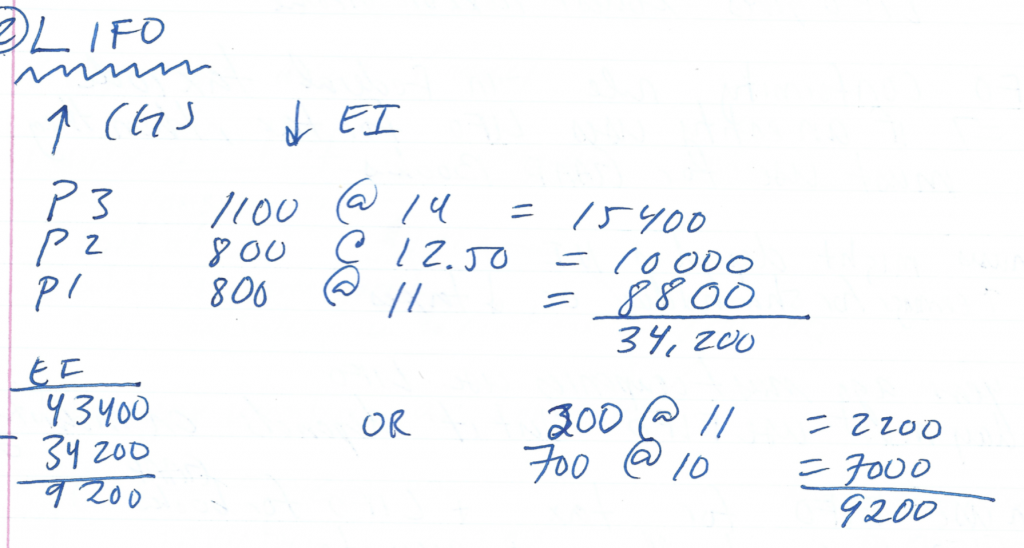 ② LIFO
↑ CGS ↓ EI
P3 1100 @ 14 = 15400
P2 800 @ 12.50 = 10000
P1 800 @ 11 = 8800
34,200
EI
43400
- 34200
9200
OR 200 @ 11 = 2200
700 @ 10 = 7000
9200